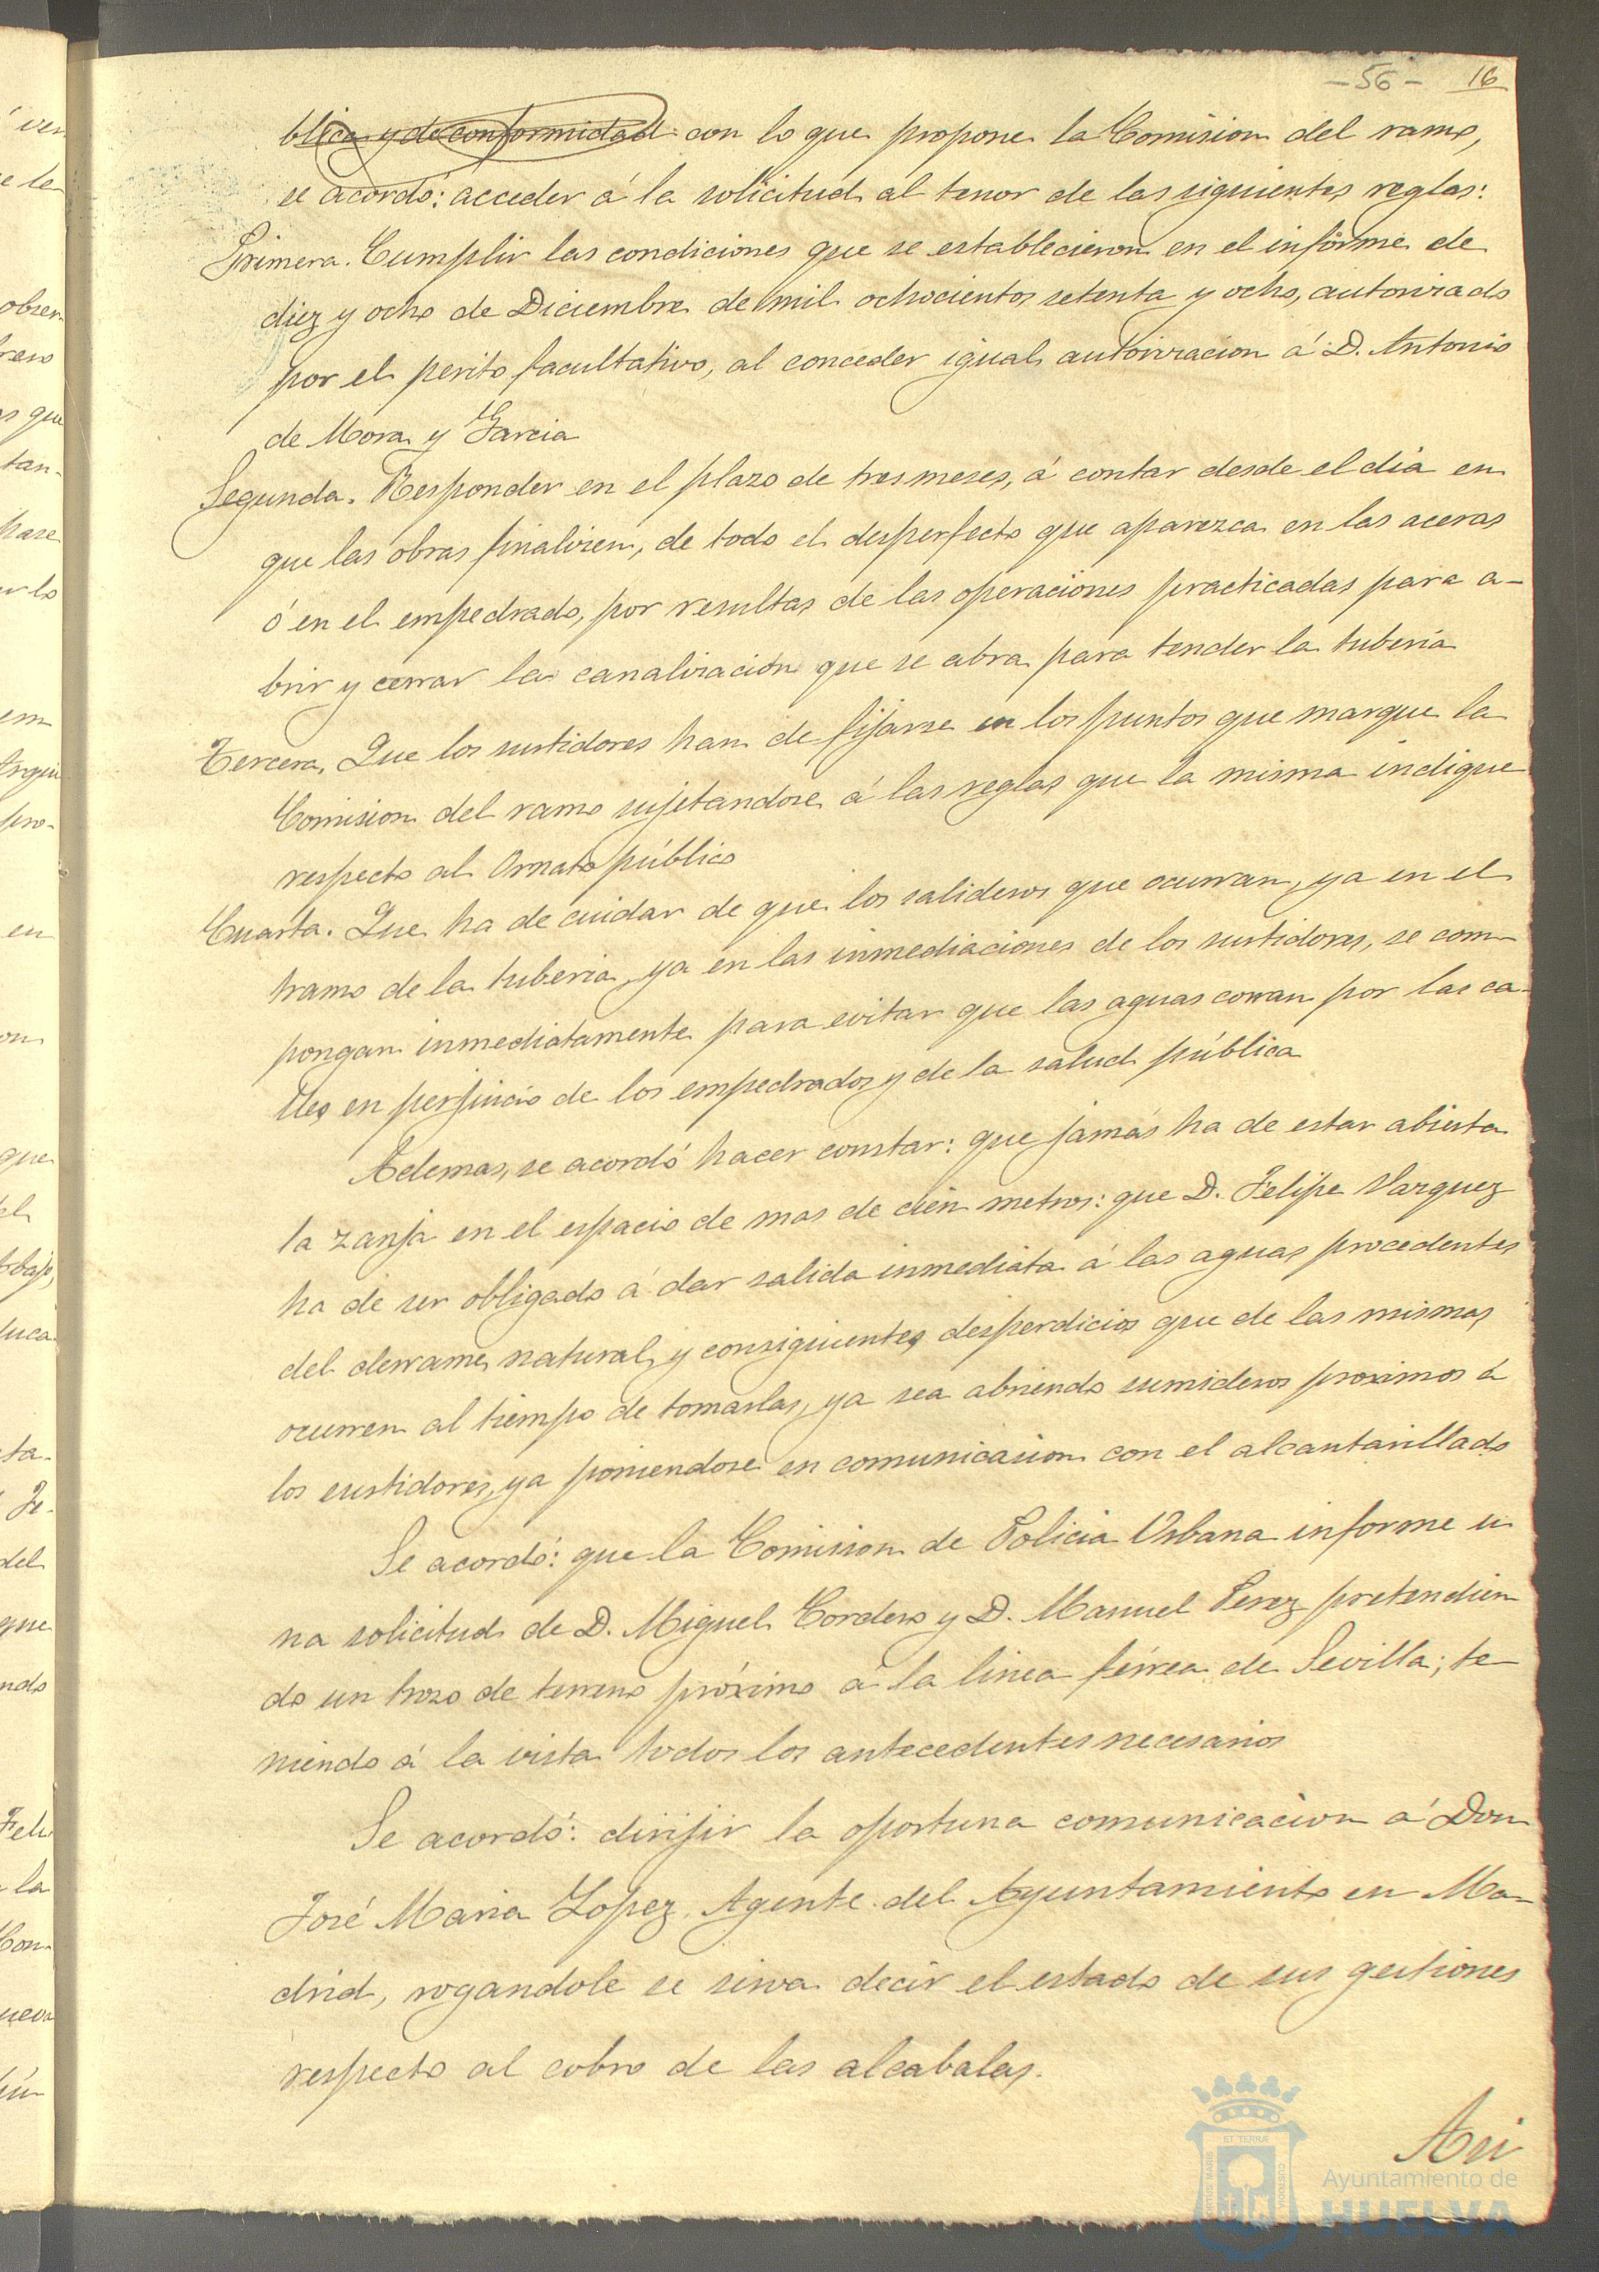 -56- 16
blica y de conformidad con lo que propone la Comision del ramo,
se acordó: acceder á la solicitud al tenor de las siguientes reglas:
Primera. Cumplir las condiciones que se establecieron en el informe de
diez y ocho de Diciembre de mil ochocientos setenta y ocho, autorizado
por el perito facultativo, al conceder igual autorizacion á D. Antonio
de Mora y Garcia
Segunda. Responder en el plazo de tres meses, á contar desde el dia en
que las obras finalizen, de todo el desperfecto que aparezca en las aceras
ó en el empedrado, por resultas de las operaciones practicadas para a-
brir y cerrar la canalizacion que se abra para tender la tuberia
Tercera. Que los surtidores han de fijarse en los puntos que marque la
Comision del ramo sujetandose á las reglas que la misma indique
respecto al Ornato público
Cuarta. Que ha de cuidar de que los salideros que ocurran, ya en el
tramo de la tuberia, ya en las inmediaciones de los surtidores, se com-
pongan inmediatamente para evitar que las aguas corran por las ca-
lles en perjuicio de los empedrados y de la salud pública
Ademas, se acordó hacer constar: que jamás ha de estar abierta
la zanja en el espacio de mas de cien metros: que D. Felipe Vazquez
ha de ser obligado á dar salida inmediata á las aguas procedentes
del derrame natural, y consiguientes desperdicios que de las mismas
ocurren al tiempo de tomarlas, ya sea abriendo sumideros proximos á
los surtidores, ya poniendose en comunicacion con el alcantarillado
Se acordó: que la Comision de Policia Urbana informe u
na solicitud de D. Miguel Cordero y D. Manuel Perez pretendien
do un trozo de terreno próximo á la linea férrea de Sevilla; te-
niendo á la vista todos los antecedentes necesarios
Se acordó: dirijir la oportuna comunicacion á Don
José Maria Lopez, Agente del Ayuntamiento en Ma-
drid, rogandole se sirva decir el estado de sus gestiones
respecto al cobro de las alcabalas.
Asi
Ayuntamiento de
HUELVA